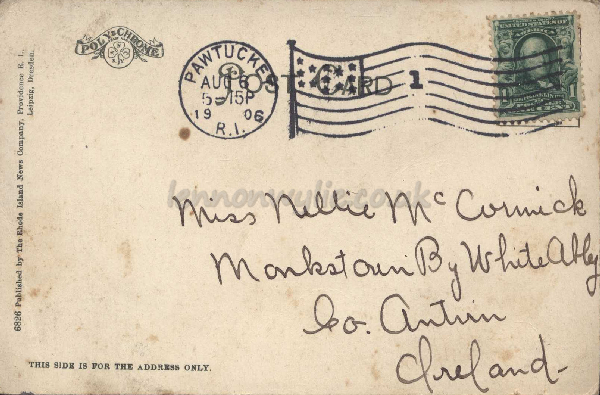 POLY-CHROME
PAWTUCKET
AUG 6
5-15P
1906
R.I.
POST CARD
1
UNITED STATES OF AMERICA
1
lennonwylie.co.uk
Miss Nellie McCormick
Monkstown By White Abby
Co. Antrim
Ireland-
THIS SIDE IS FOR THE ADDRESS ONLY.
6826 Published by The Rhode Island News Company, Providence R. I.,
Leipzig, Dresden.